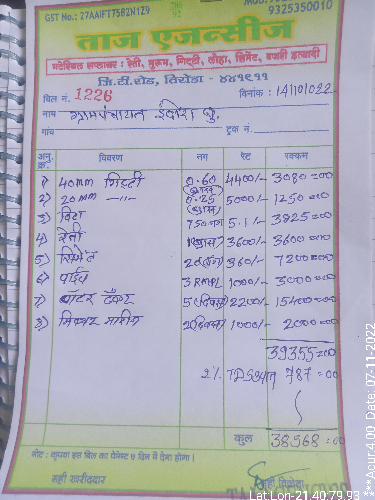 GST No.: 27AAIFT7582N1Z9
9325350010
ताज एजन्सीज
मटेरियल सप्लायर : रेती, मुरूम, गिट्टी, लोहा, सिमेंट, बजरी इत्यादी
जि.टी.रोड, तिरोडा - ४४१९११
बिल नं. 1226 दिनांक : 14/10/022
नाम ग्रामपंचायत इंदोरा बु.
गांव ट्रक नं.
अनु. क्र. विवरण नग रेट रक्कम
1) 40mm गिट्टी 0.60 (ब्रास) 4400/- 3080=00
2) 20mm -"- 0.25 (ब्रास) 5000/- 1250=00
3) विटा 750 नग 5.1/- 3825=00
4) रेती 1(ब्रास) 3600/- 3600=00
5) सिमेंट 20(बॅग) 360/- 7200=00
6) पाईप 3 1000/- 3000=00
7) वॉटर टँकर 5(दिवस) 2200/- 15400=00
8) मिक्सर मशिन 2(दिवस) 1000/- 2000=00
39355=00
2% TDS 787=00
कुल 38568=00
नोट : कृपया इस बिल का पेमेन्ट ७ दिन में देना होगा।
सही खरीददार सही विक्रेता
Lat Lon-21.40,79.93 *** Acur:4.00, Date: 07-11-2022